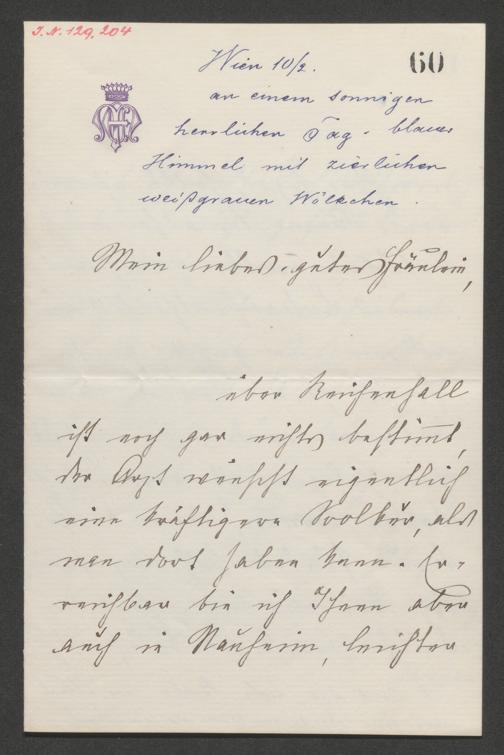 I. N. 129,204
60
Wien 10/2.
an einem sonnigen
herrlichen Tag - blauer
Himmel mit zierlichen
weißgrauen Wölkchen.
Mein liebes, gutes Fräulein,
über Reichenhall
ist noch gar nichts bestimmt,
der Arzt wünscht eigentlich
eine kräftigere Soolkur, als
man dort haben kann. Er-
reichbar bin ich Ihnen aber
auch in Nauheim, leichter